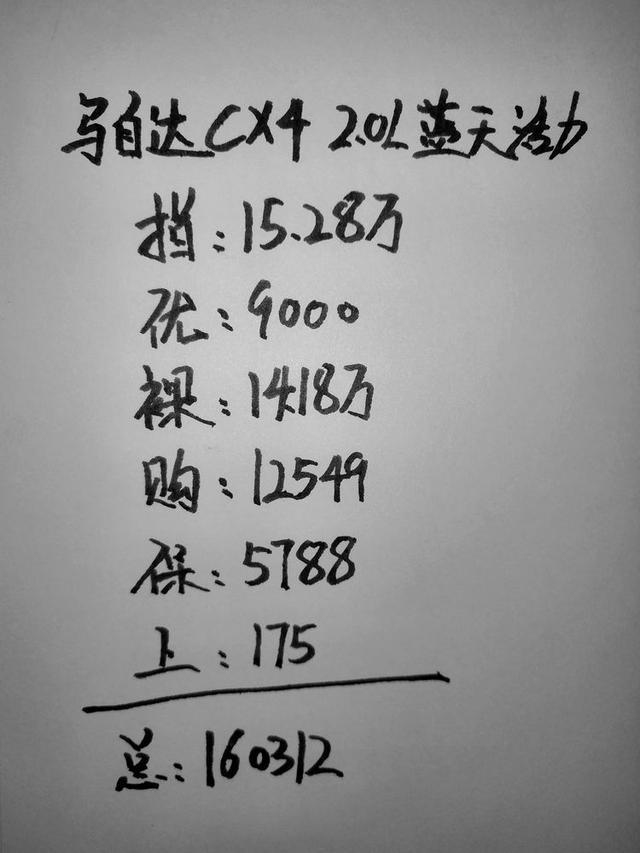 马自达CX4 2.0L蓝天活力
指:15.28万
优:9000
裸:14.18万
购:12549
保:5788
上:175
总:160312